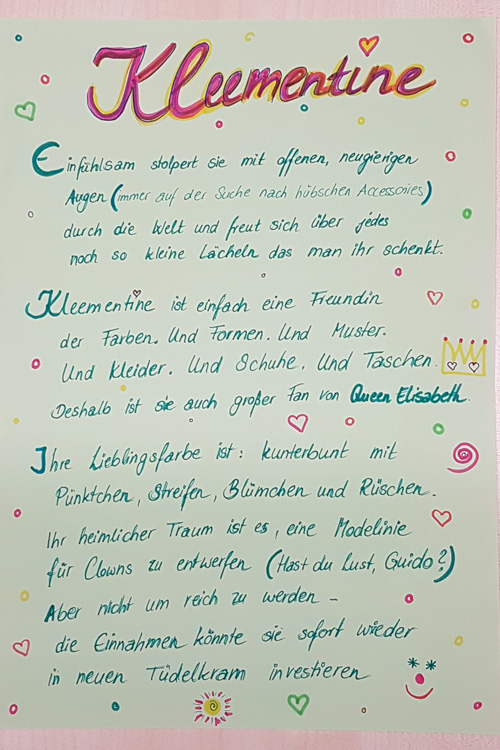 Kleementine
Einfühlsam stolpert sie mit offenen, neugierigen
Augen (immer auf der Suche nach hübschen Accessoires)
durch die Welt und freut sich über jedes
noch so kleine Lächeln das man ihr schenkt.
Kleementine ist einfach eine Freundin
der Farben. Und Formen. Und Muster.
Und Kleider. Und Schuhe. Und Taschen.
Deshalb ist sie auch großer Fan von Queen Elisabeth.
Ihre Lieblingsfarbe ist: kunterbunt mit
Pünktchen, Streifen, Blümchen und Rüschen.
Ihr heimlicher Traum ist es, eine Modelinie
für Clowns zu entwerfen (Hast du Lust, Guido?)
Aber nicht um reich zu werden –
die Einnahmen könnte sie sofort wieder
in neuen Tüdelkram investieren